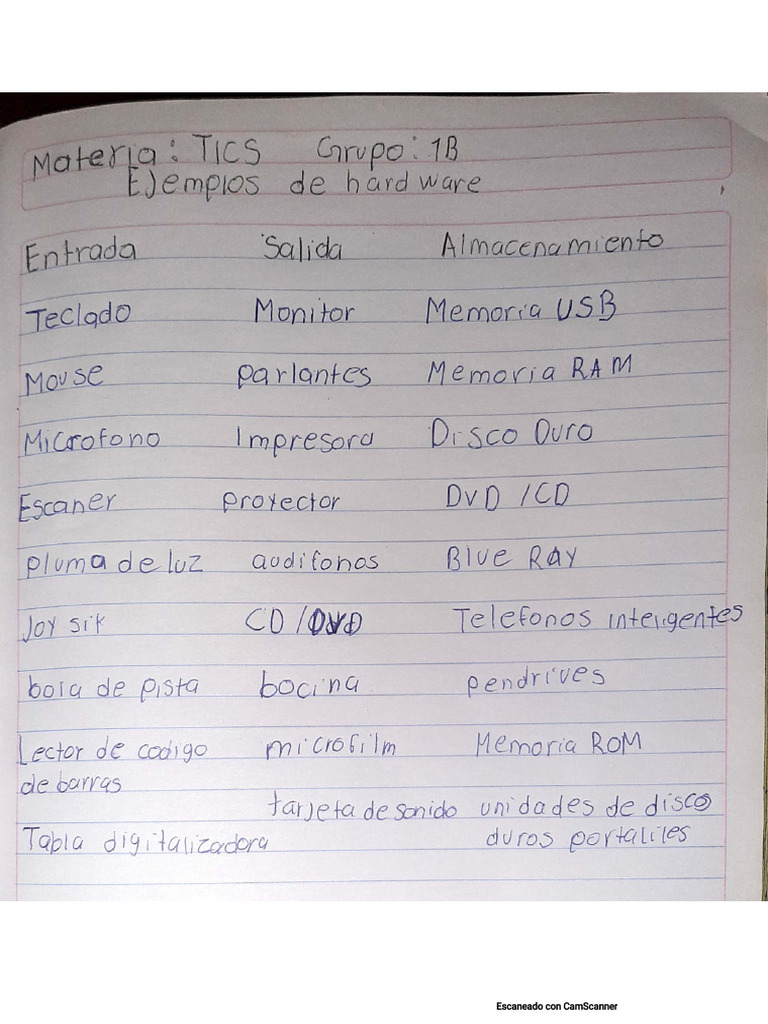 Materia: TICS Grupo: 1B
Ejemplos de hardware
Entrada Salida Almacenamiento
Teclado Monitor Memoria USB
Mouse parlantes Memoria RAM
Microfono Impresora Disco Duro
Escaner proyector DVD / CD
pluma de luz audifonos Blue Ray
Joy sik CD / DVD Telefonos inteligentes
bola de pista bocina pendrives
Lector de codigo microfilm Memoria ROM
de barras
tarjeta de sonido unidades de discos
Tabla digitalizadora duros portaliles
Escaneado con CamScanner